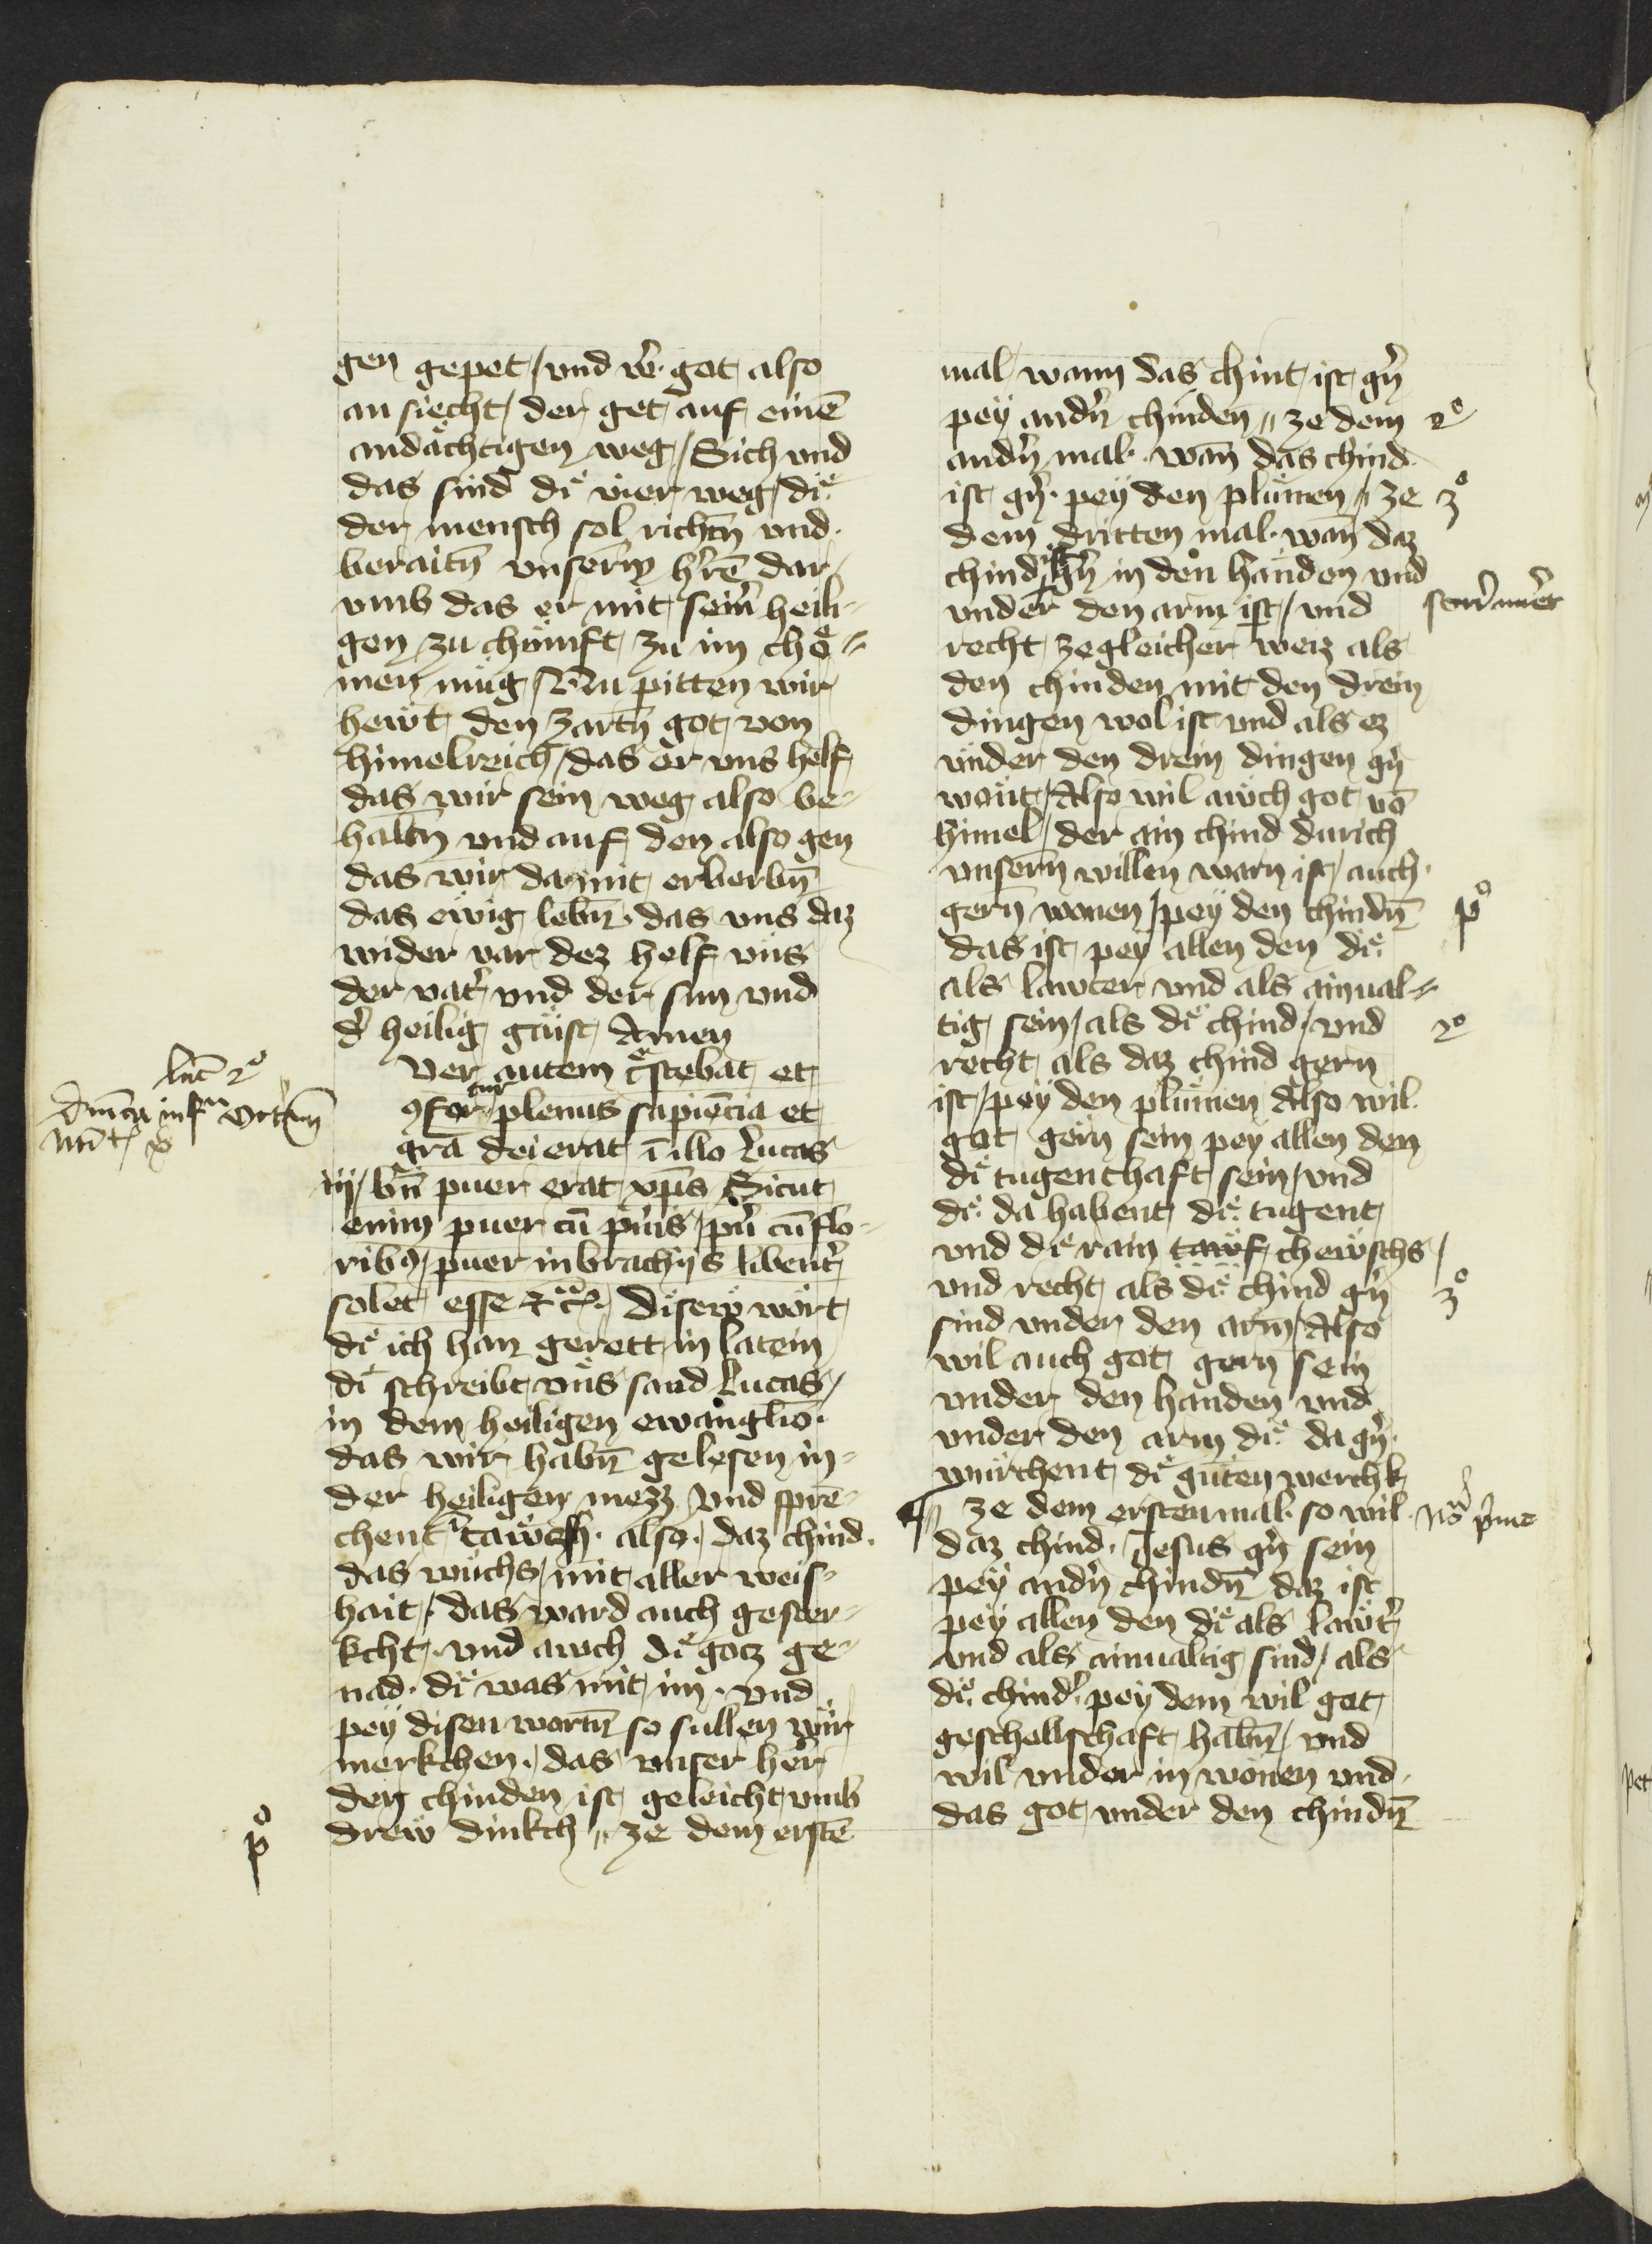 gen gepet / vnd wͤ got also
an siecht / der get auf einē
andächtigen weg / Sich vnd
das sind diͤ vier weg / diͤ
der mensch sol richtn̄ vnd
beraitn̄ vnserm h'rē dar
vmb das er mit sein̄ heili-
gen zu chünft zu im chö-
men müg / Nu pitten wir
hewt den zartn̄ got von
himelreich / das er vns helf
das wir sein weg also be-
haltn̄ vnd auf den also gen
das wir da mit erberbn̄
das ewig lebn̄ · das vns daz
wider var dez helf vns
der vat' vnd der sun vnd
d' heilig gäist Amen
Puer autem c'scebat et
ꝯfortabatur plenus sapiēcia et
grā dei erat ī illo Lucas
ij / bn̄ puer erat xp̄s Sicut
enim puer cū pu'is / pu' cū flo-
ribꝰ / puer in brachijs libent'
solet esse ⁊c̄ · Disew wort
diͤ ich han gerett in latein
diͤ schreibt vns sand Lucas /
in dem heiligen ewanglio ·
das wir habn̄ gelesen in
der heiligen mezz vnd sprē-
chent tawtsch · also · daz chind ·
das wuchs / mit aller weis-
hait / das ward auch gester-
kcht · vnd awch diͤ gotz ge-
nad · diͤ was mit im · vnd
pey disen wortn̄ so sullen wir
merkchen · das vnser her
den chinden ist geleicht vmb
drew dinkch // ze dem erstē
Luc̄ 2º
Dn̄ica infra octauā
Nat' x
pº
mal / wann das chint ist g'n
pey and'n chinden // ze dem
and'n mal · wan̄ das chind
ist g'n · pey den plumen // ze
dem dritten mal · wan̄ daz
chind ist g'n in den handen vnd
vnder den arm ist / vnd
recht zegleicher weiz als
den chinden mit den drein
dingen wol ist vnd als ez
vnder den drein dingen g'n
wont / Also wil awch got vō
himel / der ain chind durich
vnsern willen warn ist / auch
gern wonen / pey den chindn̄
das ist pey allen den diͤ
als lawter vnd als ainual-
tig sein / als diͤ chind / vnd
recht als daz chind gern
ist / pey den plumen Also wil
got gern sein pey allen den
diͤ tugenthaft sein / vnd
diͤ da habent diͤ tugent
vnd diͤ rain tawf chewschs /
vnd recht als diͤ chind g'n
sind vnder den arm / Also
wil auch got gern sein
vnder den handen vnd
vnder den arm diͤ da g'n ·
würchent diͤ guten werchk
// ze dem ersten mal · so wil
daz chind · Jesus g'n sein
pey and'n chindn̄ daz ist
pey allen den diͤ als lawt'
vnd als ainualtig sind / als
diͤ chind' · pey dem wil got
geschellschaft habn̄ / vnd
wil vnder in wonen vnd
das got vnder den chindn̄
2º
3º
pº
2º
3º